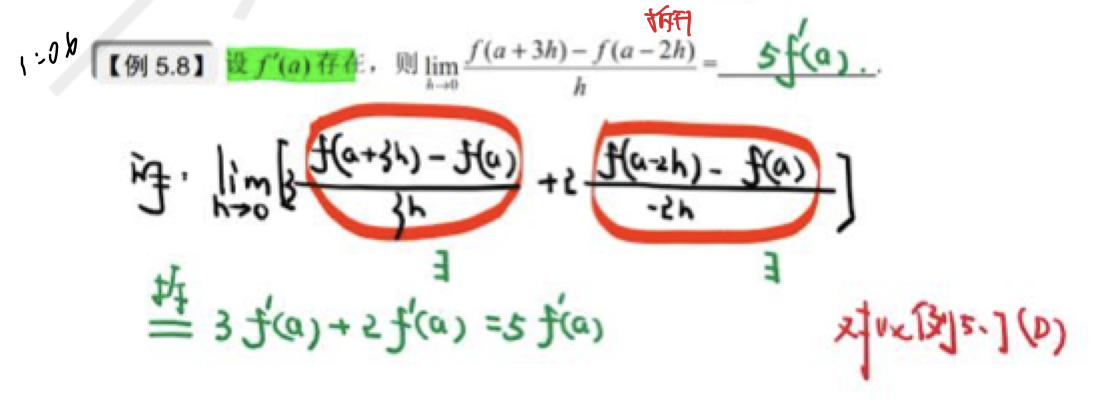 拆开
1:06 【例 5.8】 设 f′(a) 存在，则 lim_{h→0} \frac{f(a+3h)-f(a-2h)}{h} = 5f′(a).
lim_{h→0} [3 \frac{f(a+3h)-f(a)}{3h} +2 \frac{f(a-2h)-f(a)}{-2h}]
∃ ∃
拆 = 3f′(a)+2f′(a)=5f′(a)
对比[例5.](D)